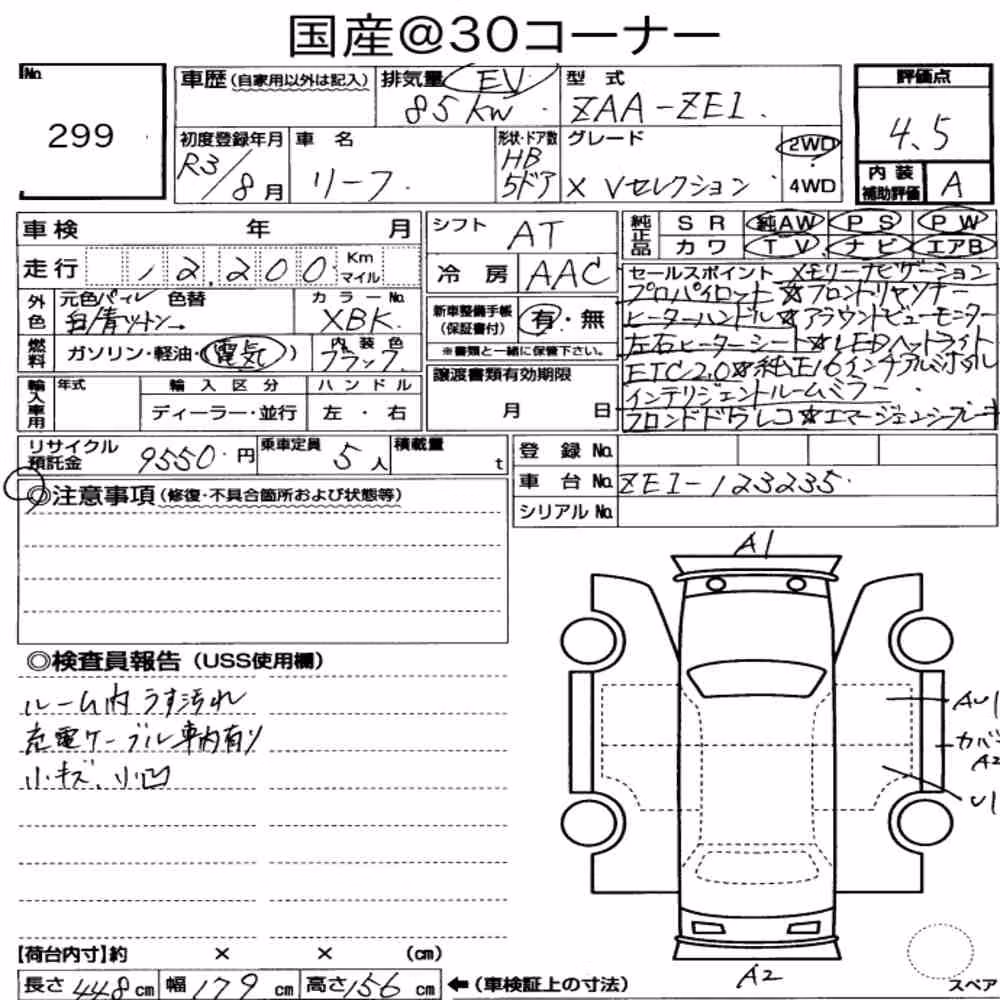 国産@30コーナー
No.
299
車歴(自家用以外は記入)
排気量 EV
85kw
型式
ZAA-ZE1
評価点
4.5
内装補助評価 A
初度登録年月
R3/8月
車名
リーフ
形状・ドア数
HB
5ドア
グレード
X Vセレクション
2WD
4WD
車検 年 月
走行 12,200 Km マイル
シフト AT
冷房 AAC
純正品 SR 純AW PS PW
カワ TV ナビ エアB
外色 元色パール 色替
白/青ツートン
カラーNo.
XBK
燃料 ガソリン・軽油・(電気)
内装色
ブラック
輸入車用 年式 輸入区分 ハンドル
ディーラー・並行 左・右
新車整備手帳(保証書付) 有・無
※書類と一緒に保管下さい。
譲渡書類有効期限
月 日
セールスポイント メモリーナビゲーション
プロパイロット☆フロントリヤソナー
ヒーターハンドル☆アラウンドビューモニター
左右ヒーターシート☆LEDヘッドライト
ETC2.0☆純正16インチアルミホイル
インテリジェントルームミラー
フロントドラレコ☆エマージェンシーブレーキ
リサイクル預託金 9550円
乗車定員 5人
積載量 t
登録No.
車台No. ZE1-123235
シリアルNo.
◎注意事項(修復・不具合箇所および状態等)
◎検査員報告(USS使用欄)
ルーム内うす汚れ
充電ケーブル車内有り
小キズ、小凹
A1
AU1
カバー
A2
U1
A2
スペア
【荷台内寸】約 × × (cm)
長さ448cm 幅179cm 高さ156cm ←(車検証上の寸法)